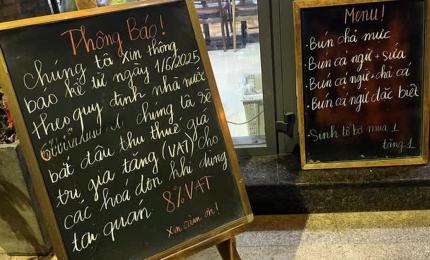 Thông Báo!
Chúng tôi xin thông
báo kể từ ngày 1/6/2025
theo quy định nhà nước
chúng tôi sẽ
bắt đầu thu thuế giá
trị gia tăng (VAT) cho
các hoá đơn khi dùng
tại quán 8% VAT
Xin cảm ơn!
Menu!
Bún chả mực
Bún cá ngừ + sứa
Bún cá ngừ + chả cá
Bún cá ngừ đặc biệt
Sinh tố bơ mua 1
tặng 1